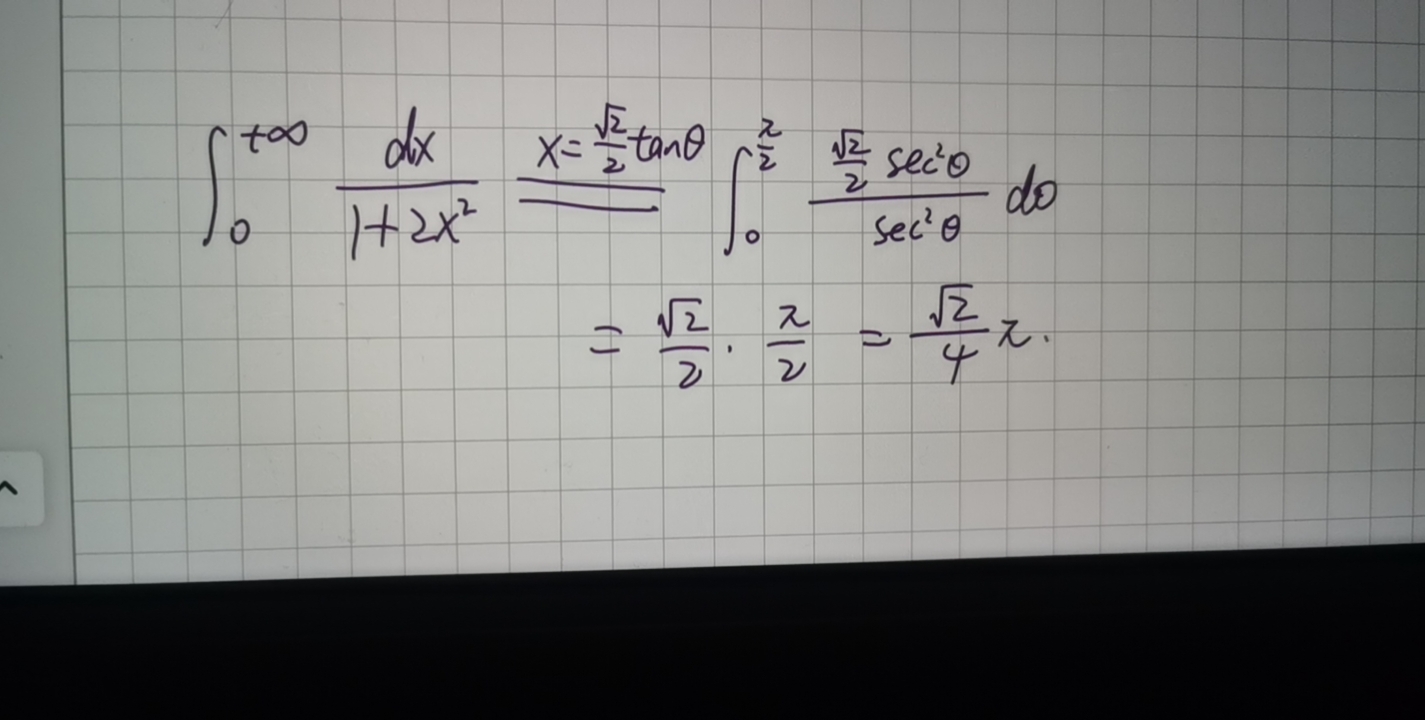 ∫₀^{+∞} dx/(1+2x²) \xlongequal{x=\frac{√2}{2}tanθ} ∫₀^{π/2} (\frac{√2}{2} sec²θ)/(sec²θ) dθ
= √2/2 · π/2 = √2/4 π.